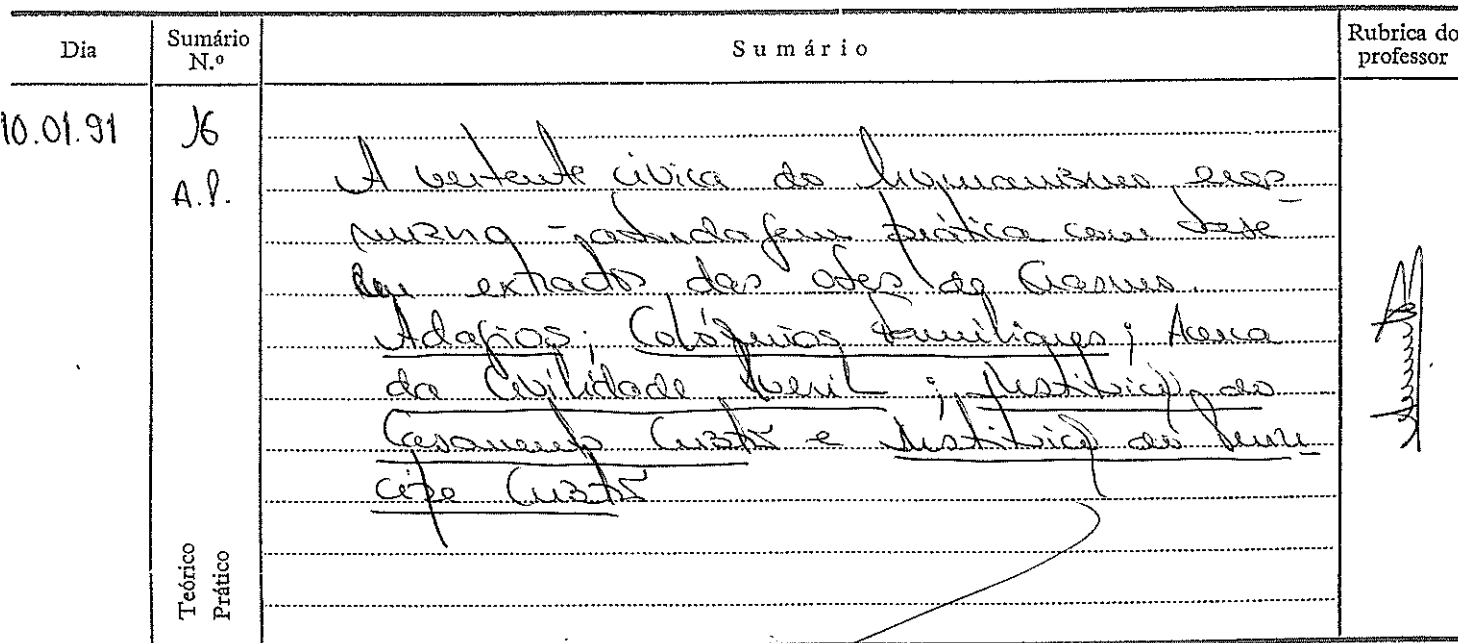 Dia
Sumário N.º
Sumário
Rubrica do professor
10.01.91
16
A.P.
A vertente cívica do humanismo eras-
miano - abordagem prática com base
em extractos das obras de Erasmo.
Adágios; Colóquios Familiares; Acerca
da Civilidade Pueril; Instituição do
Casamento Cristão e Instituição do Prín-
cipe Cristão
Teórico
Prático